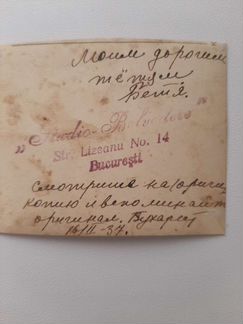 Моим дорогим
тётям
Бетя.
"Studio-Belvedere"
Str. Lizeanu No. 14
București
Смотрите на
копию и вспоминайте
оригинал. Бухарест
16/III-37.